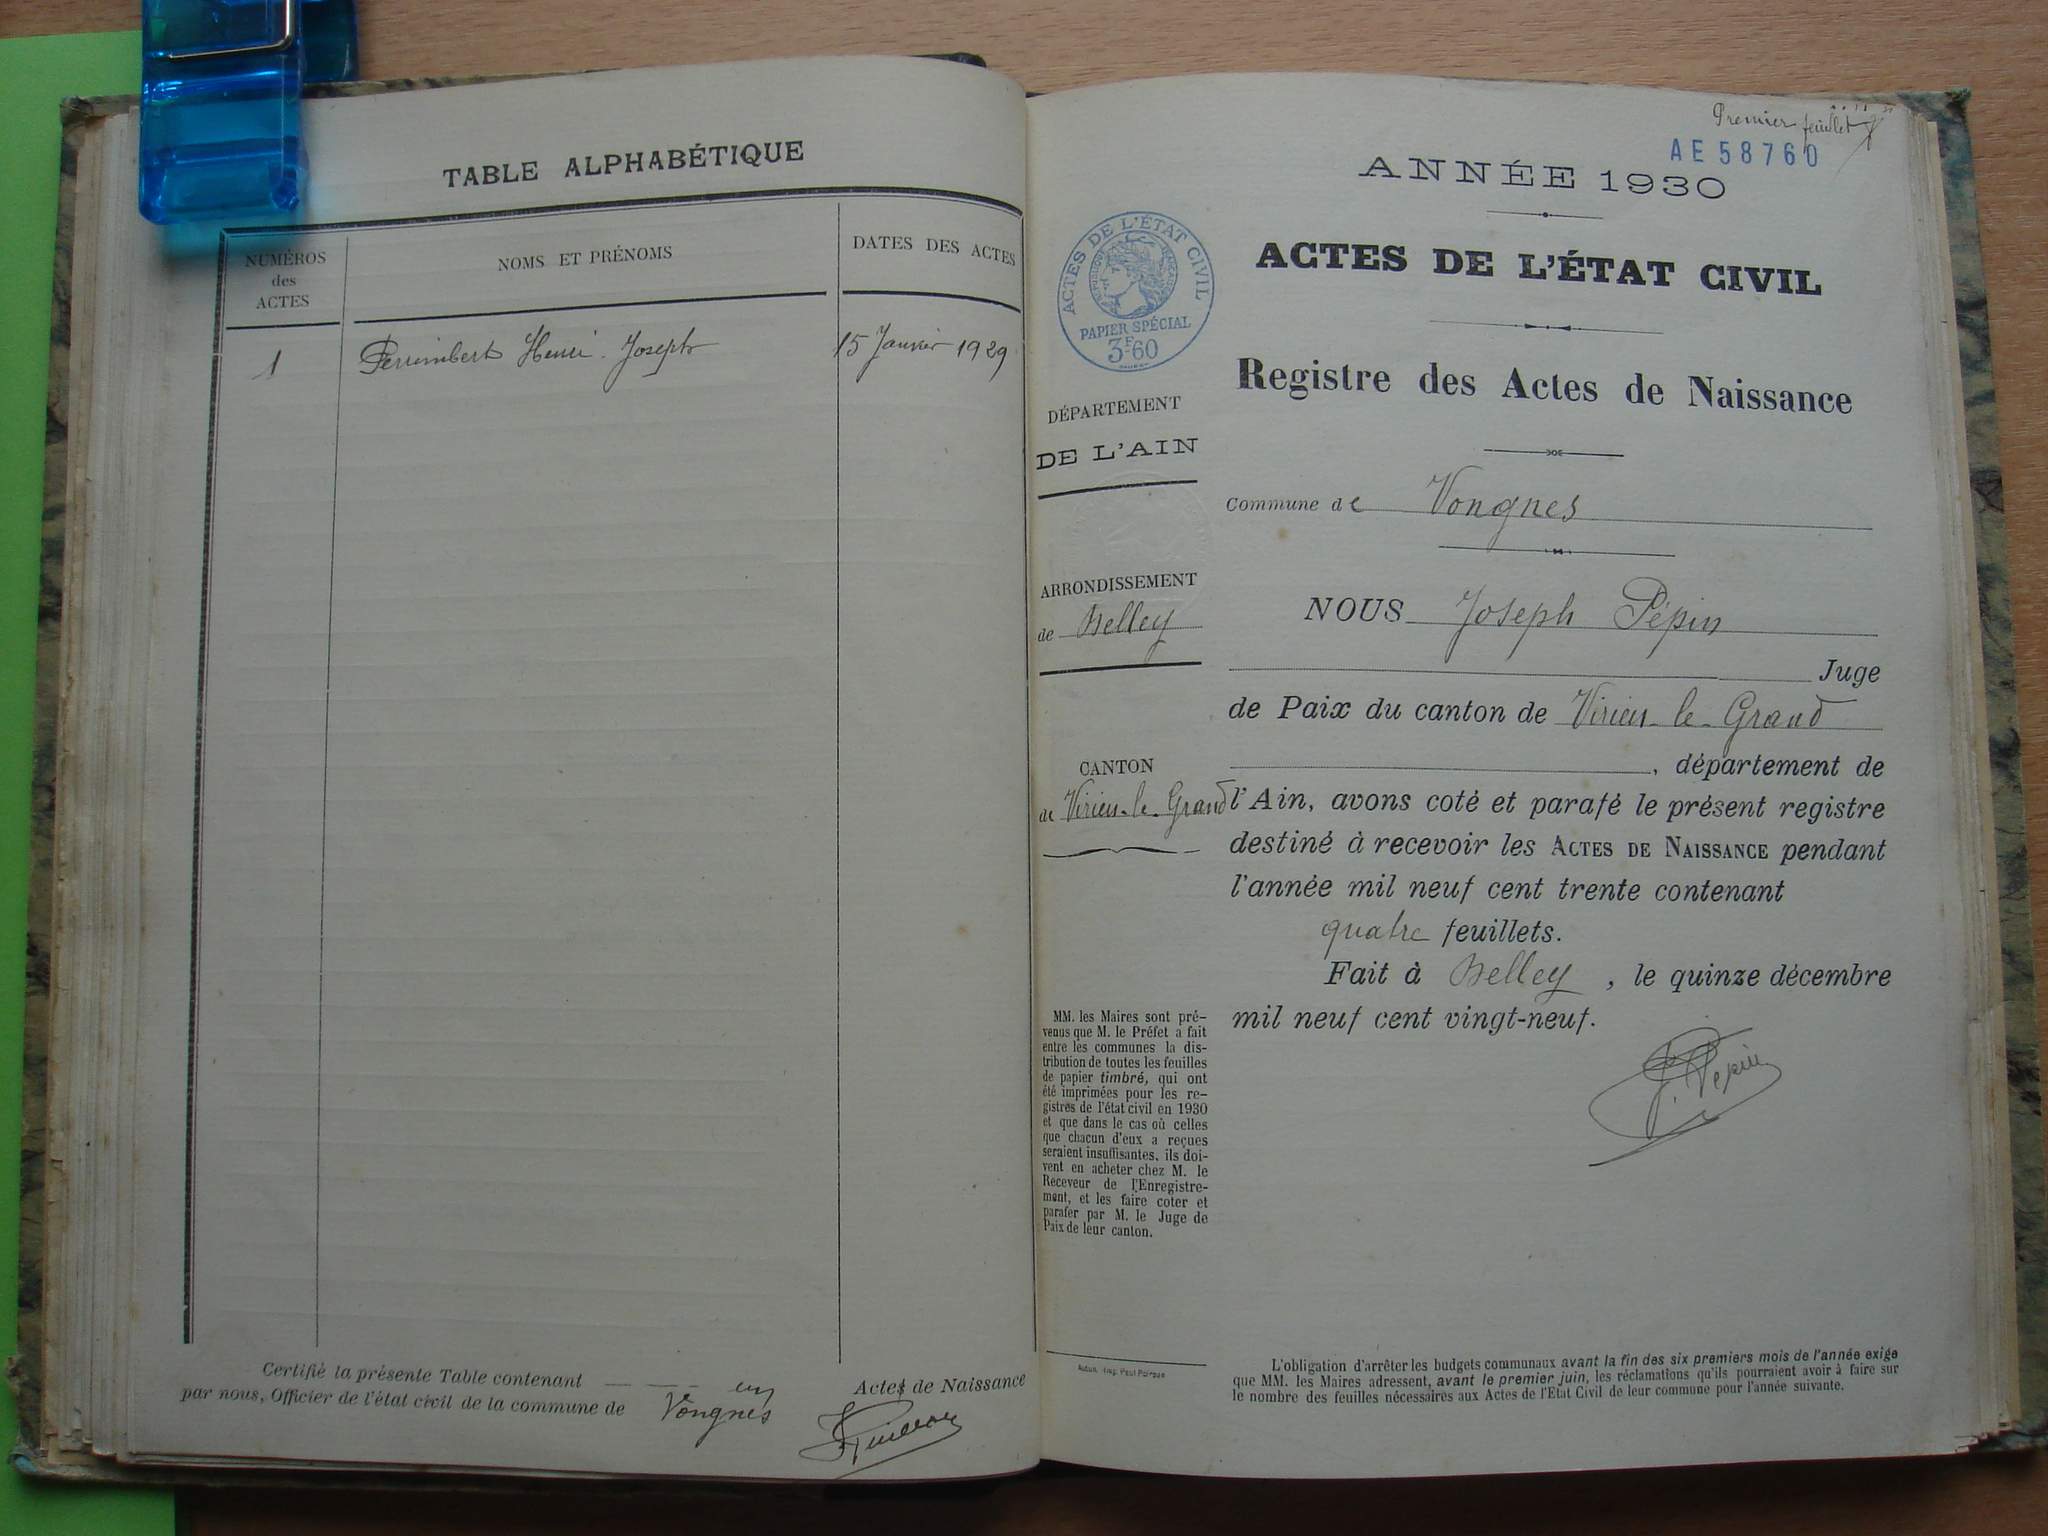 TABLE ALPHABÉTIQUE
NUMÉROS
des
ACTES
NOMS ET PRÉNOMS
DATES DES ACTES
1
Perrimbert Henri Joseph
15 Janvier 1929
Certifié la présente Table contenant un Actes de Naissance
par nous, Officier de l'état civil de la commune de Vongnes
Premier feuillet
AE 58760
ANNÉE 1930
ACTES DE L'ÉTAT CIVIL
RÉPUBLIQUE FRANÇAISE
PAPIER SPÉCIAL
3F60
ACTES DE L'ÉTAT CIVIL
Registre des Actes de Naissance
DÉPARTEMENT
DE L'AIN
Commune de Vongnes
ARRONDISSEMENT
de Belley
CANTON
de Virieu-le-Grand
NOUS Joseph Pépin
Juge
de Paix du canton de Virieu-le-Grand
, département de
l'Ain, avons coté et parafé le présent registre
destiné à recevoir les ACTES DE NAISSANCE pendant
l'année mil neuf cent trente contenant
quatre feuillets.
Fait à Belley, le quinze décembre
mil neuf cent vingt-neuf.
J. Pépin
MM. les Maires sont pré-
venus que M. le Préfet a fait
entre les communes la dis-
tribution de toutes les feuilles
de papier timbré, qui ont
été imprimées pour les re-
gistres de l'état civil en 1930
et que dans le cas où celles
que chacun d'eux a reçues
seraient insuffisantes, ils doi-
vent en acheter chez M. le
Receveur de l'Enregistre-
ment, et les faire coter et
parafer par M. le Juge de
Paix de leur canton.
Autun. Imp. Paul
L'obligation d'arrêter les budgets communaux avant la fin des six premiers mois de l'année exige
que MM. les Maires adressent, avant le premier juin, les réclamations qu'ils pourraient avoir à faire sur
le nombre des feuilles nécessaires aux Actes de l'Etat Civil de leur commune pour l'année suivante.